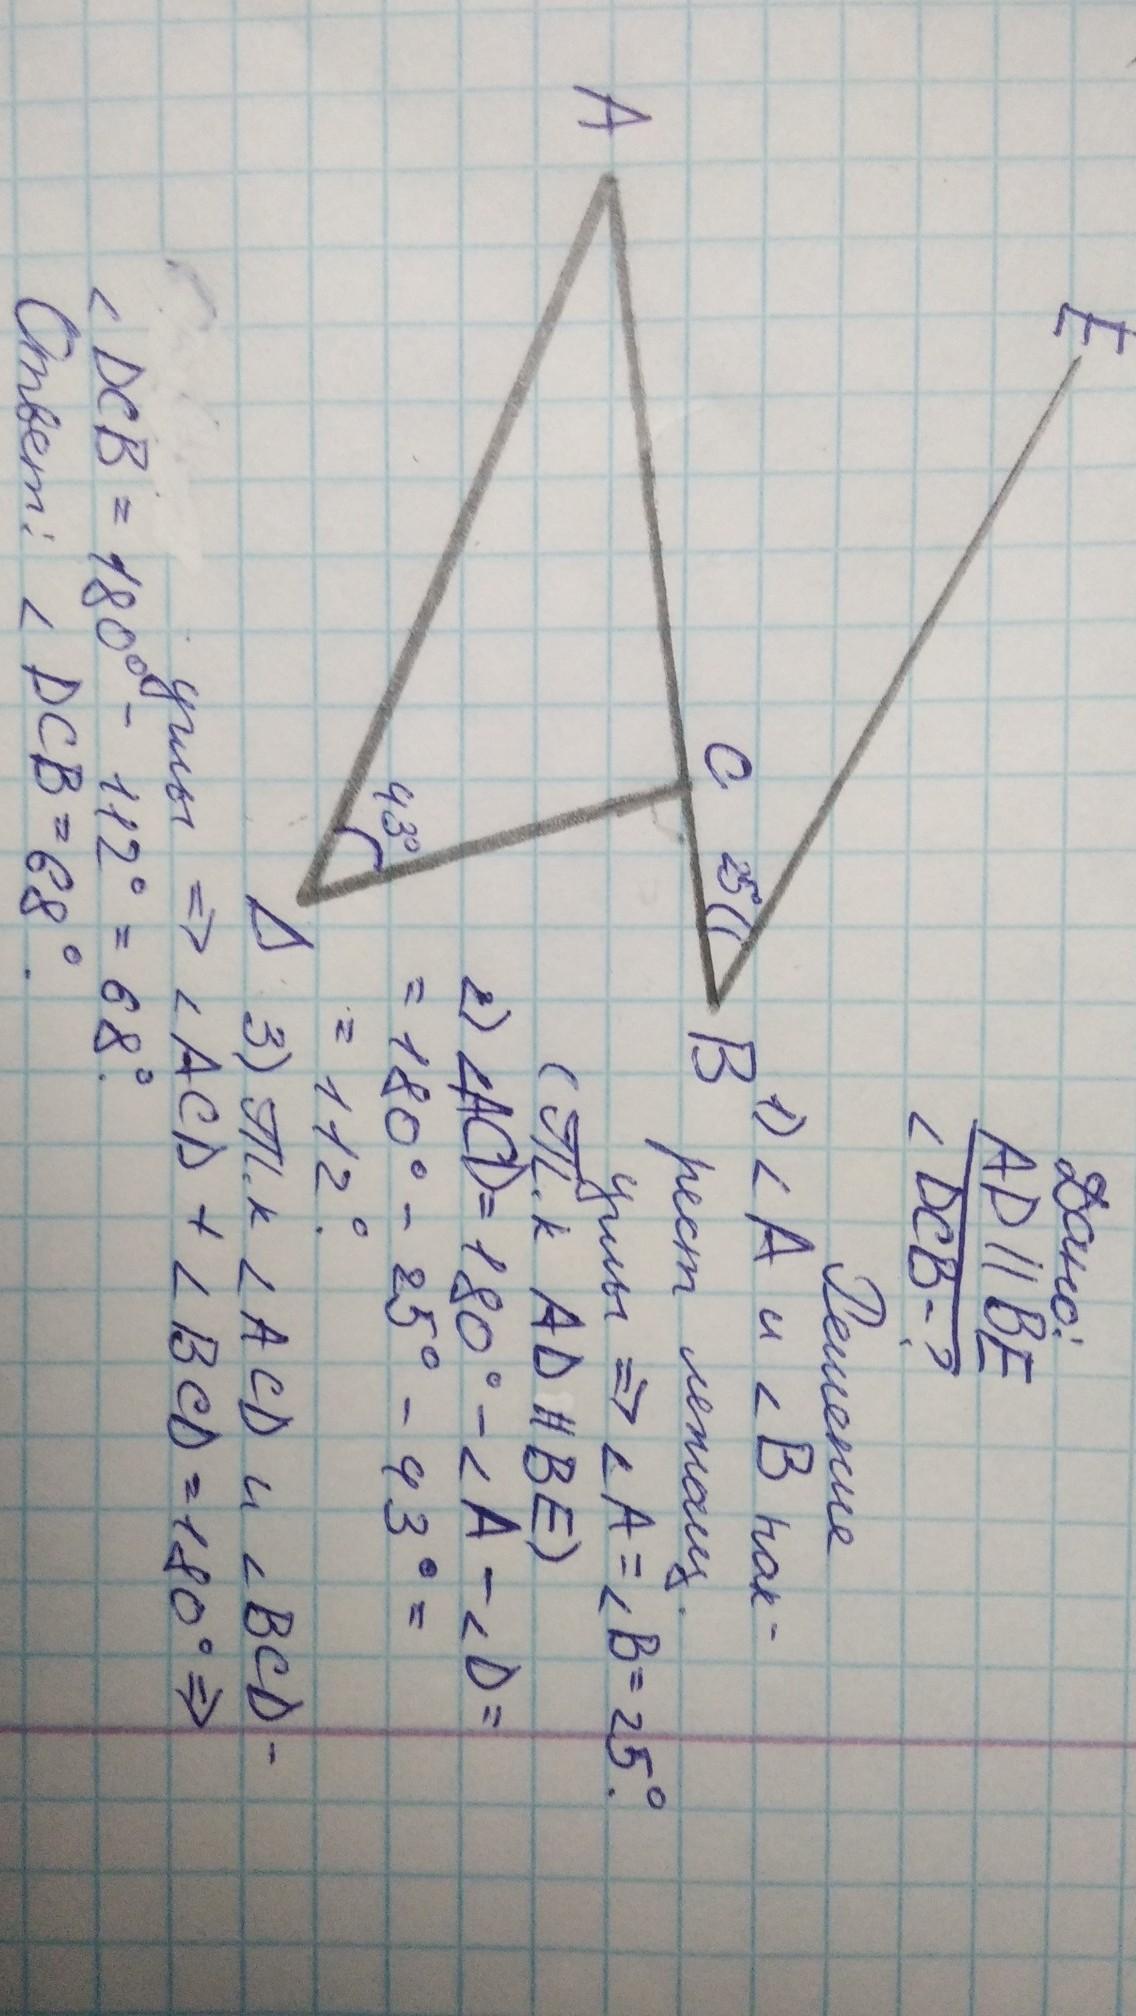 E
Дано:
AD || BE
< DCB - ?
Решение
A
C
25°
B
43°
D
1) < A и < B нак-
рест лежащ.
углы => < A = < B = 25°.
(Т.к AD || BE)
2) <ACD = 180° - < A - < D =
= 180° - 25° - 43° =
= 112°.
3) Т.к < ACD и < BCD -
углы => < ACD + < BCD = 180° =>
< DCB = 180° - 112° = 68°.
Ответ: < DCB = 68°.